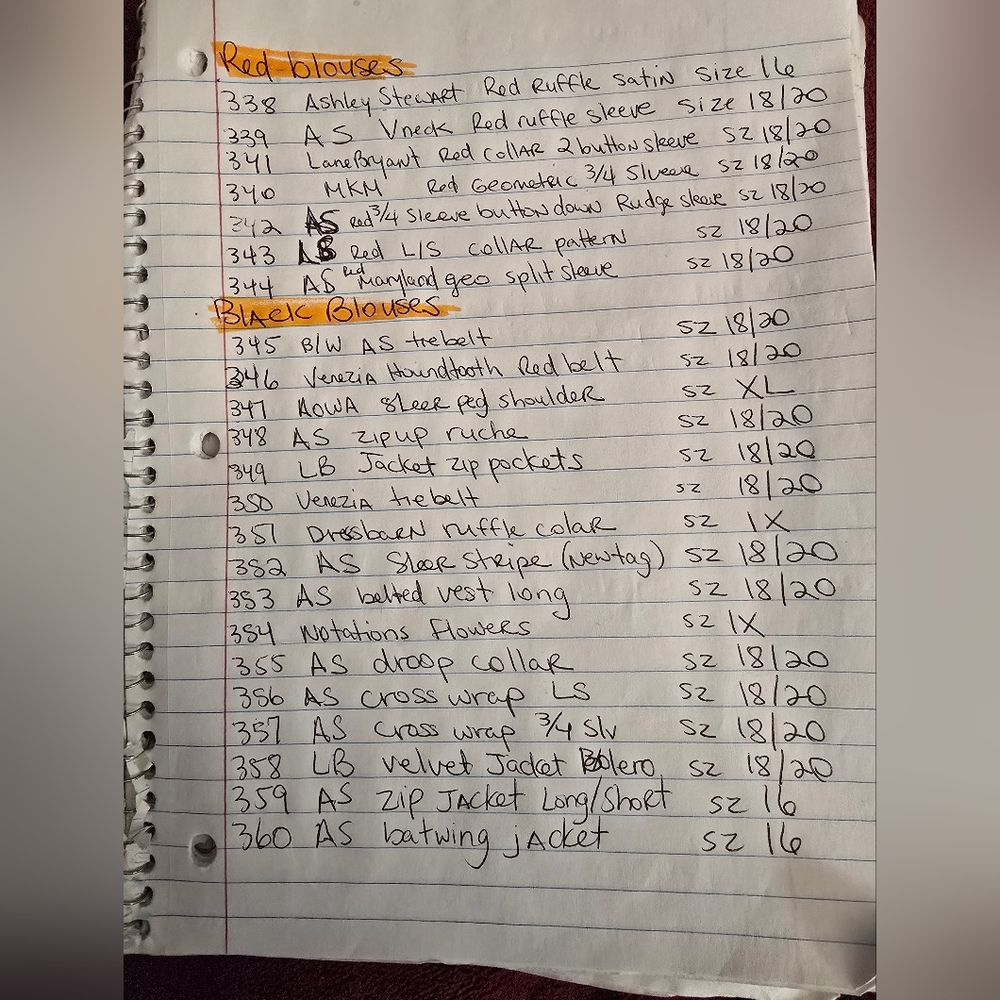 Red blouses
338 Ashley Stewart Red Ruffle Satin Size 16
339 AS Vneck Red ruffle sleeve Size 18/20
341 LaneBryant Red Collar 2 button sleeve SZ 18/20
340 MKM Red Geometric 3/4 Slveeve SZ 18/20
342 AS Red 3/4 Sleeve button down Rudge sleeve SZ 18/20
343 LB Red L/S Collar pattern SZ 18/20
344 AS Red Maryland geo split sleeve SZ 18/20
Black Blouses
345 B/W AS tie belt SZ 18/20
346 Venezia Houndtooth Red belt SZ 18/20
347 AOWA Sleer peg shoulder SZ XL
348 AS zip up ruche SZ 18/20
349 LB Jacket zip pockets SZ 18/20
350 Venezia tie belt SZ 18/20
351 Dressbarn ruffle colar SZ 1X
352 AS Sleer Stripe (New tag) SZ 18/20
353 AS belted vest long SZ 18/20
354 Notations Flowers SZ 1X
355 AS droop collar SZ 18/20
356 AS cross wrap LS SZ 18/20
357 AS Cross wrap 3/4 Slv SZ 18/20
358 LB velvet Jacket Bolero SZ 18/20
359 AS Zip Jacket Long/Short SZ 16
360 AS batwing jacket SZ 16